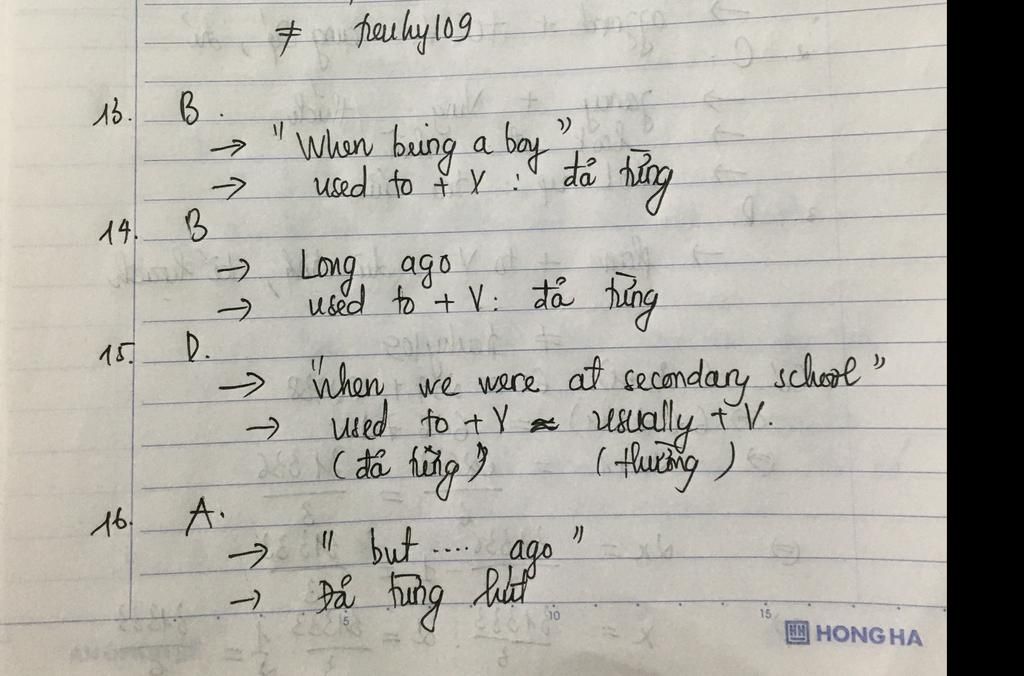 ≠ peuhy109
13. B.
→ "When being a boy"
→ used to + V : đã từng
14. B
→ Long ago
→ used to + V: đã từng
15. D.
→ "When we were at secondary school"
→ used to + V ≈ usually + V.
(đã từng) (thường)
16. A.
→ " but .... ago "
→ Đã từng hút
5 10 15
HH HONG HA